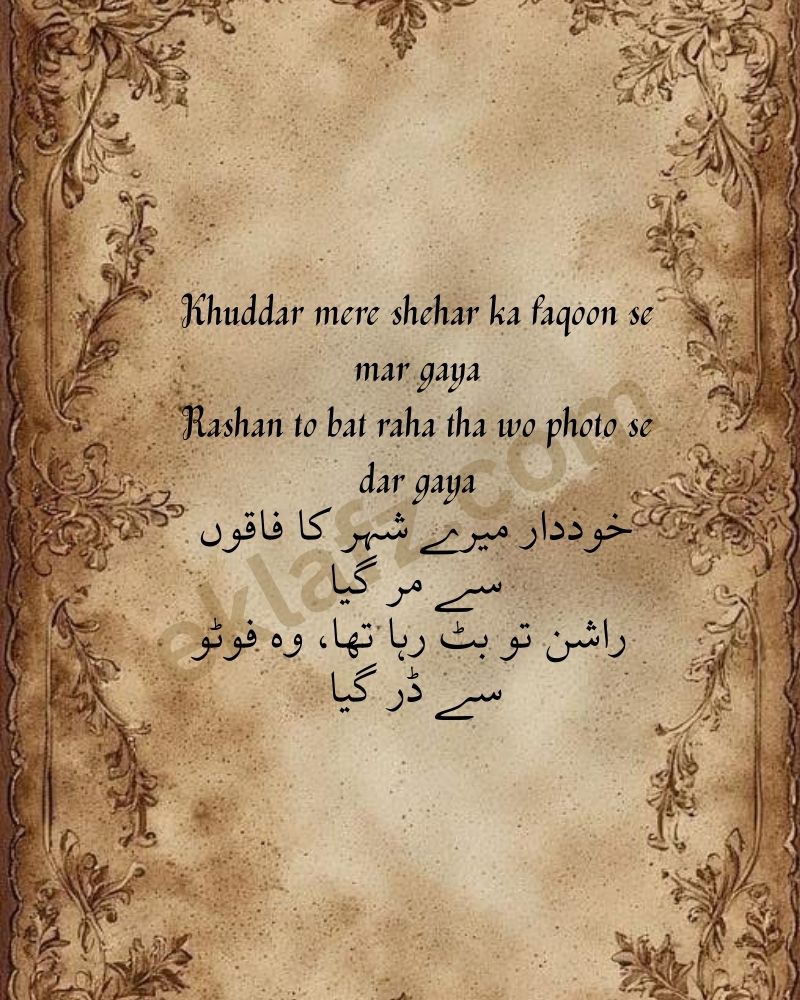 Khuddar mere shehar ka faqoon se
mar gaya
Rashan to bat raha tha wo photo se
dar gaya
خوددار میرے شہر کا فاقوں
سے مر گیا
راشن تو بٹ رہا تھا، وہ فوٹو
سے ڈر گیا
eklafz.com